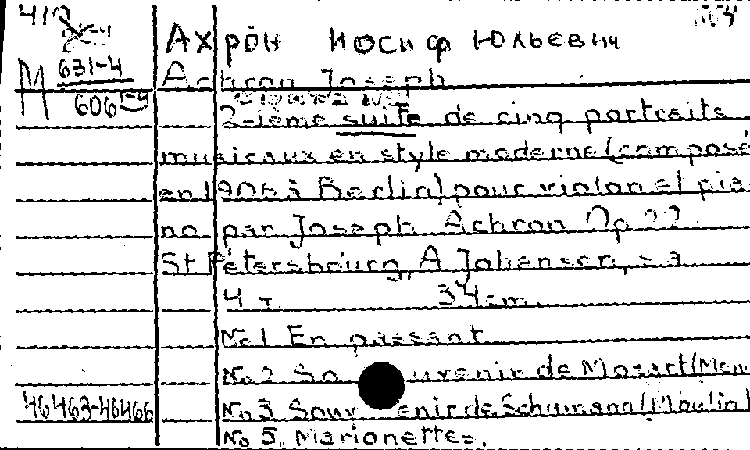 Ахрон Иосиф Юльевич
M 631-4 Achron Joseph
606
2-ième suite de cinq portraits
musicaux en style moderne (composé
en 1906 à Berlin) pour violon et pia
no par Joseph Achron Op 22
St Pétersbourg, A Johansen, s a
4 т 34 cm.
No 1 En passant
No 2 Souvenir de Mozart (Men
46463-46466 No 3 Souvenir de Schumann (Moulin)
No 5. Marionettes.